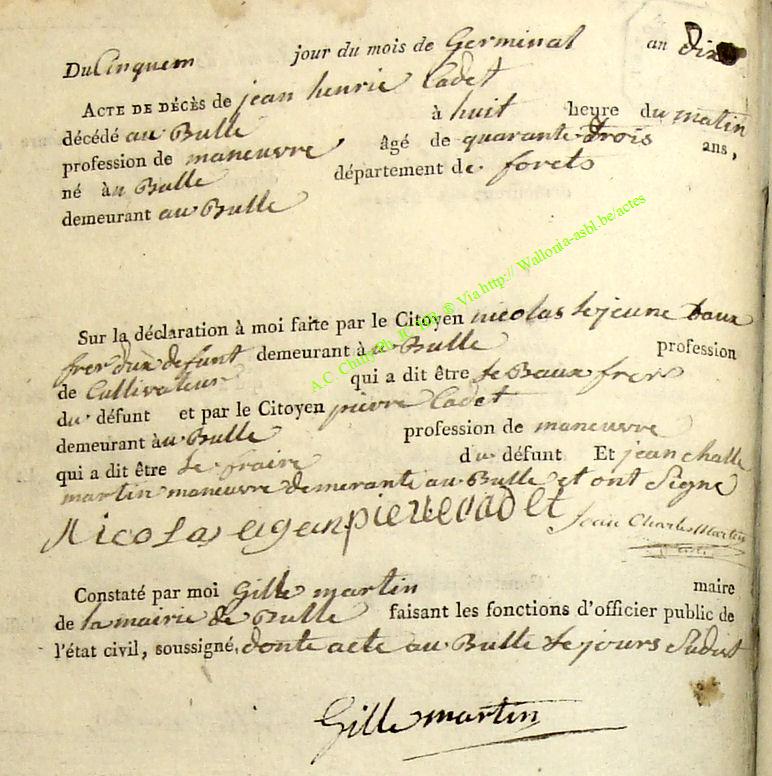 Du Cinquem jour du mois de Germinal an dix
ACTE DE DÉCÈS de jean henrie Cadet
décédé au Bulle à huit heure du matin
profession de maneuvre âgé de quarante trois ans,
né àu Bulle département de forets
demeurant au Bulle
Sur la déclaration à moi faite par le Citoyen nicolas lejeune Baux
frer dux defunt demeurant àu Bulle profession
de Cultivateur qui a dit être le Beaux frer
du défunt et par le Citoyen pierre Cadet
demeurant àu Bulle profession de maneuvre
qui a dit être le fraire du défunt Et jean challe
martin maneuvre demerante au Bulle et ont Signe
Nicolas piere cadet Jean Charles Martin
Constaté par moi Gille martin maire
de la mairie de Bulle faisant les fonctions d'officier public de
l'état civil, soussigné, donte acte au Bulle le jours Sudit
Gille martin
A.C. Chiny ® Via http:// Wallonia-asbl.be/actes